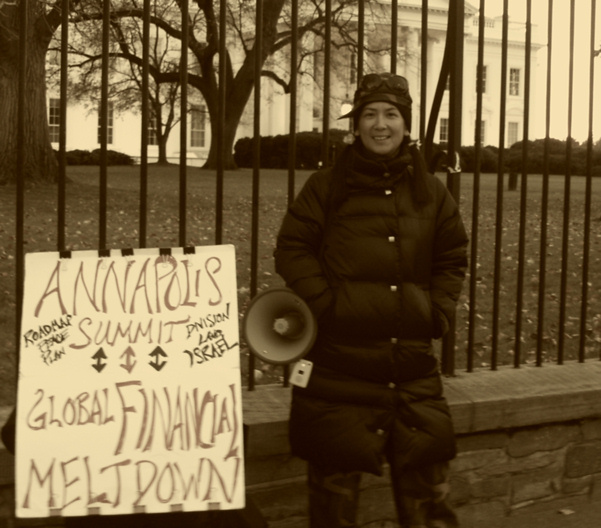 ANNAPOLIS
ROADMAP
PEACE
PLAN
SUMMIT
DIVISION
LAND
ISRAEL
GLOBAL FINANCIAL
MELTDOWN